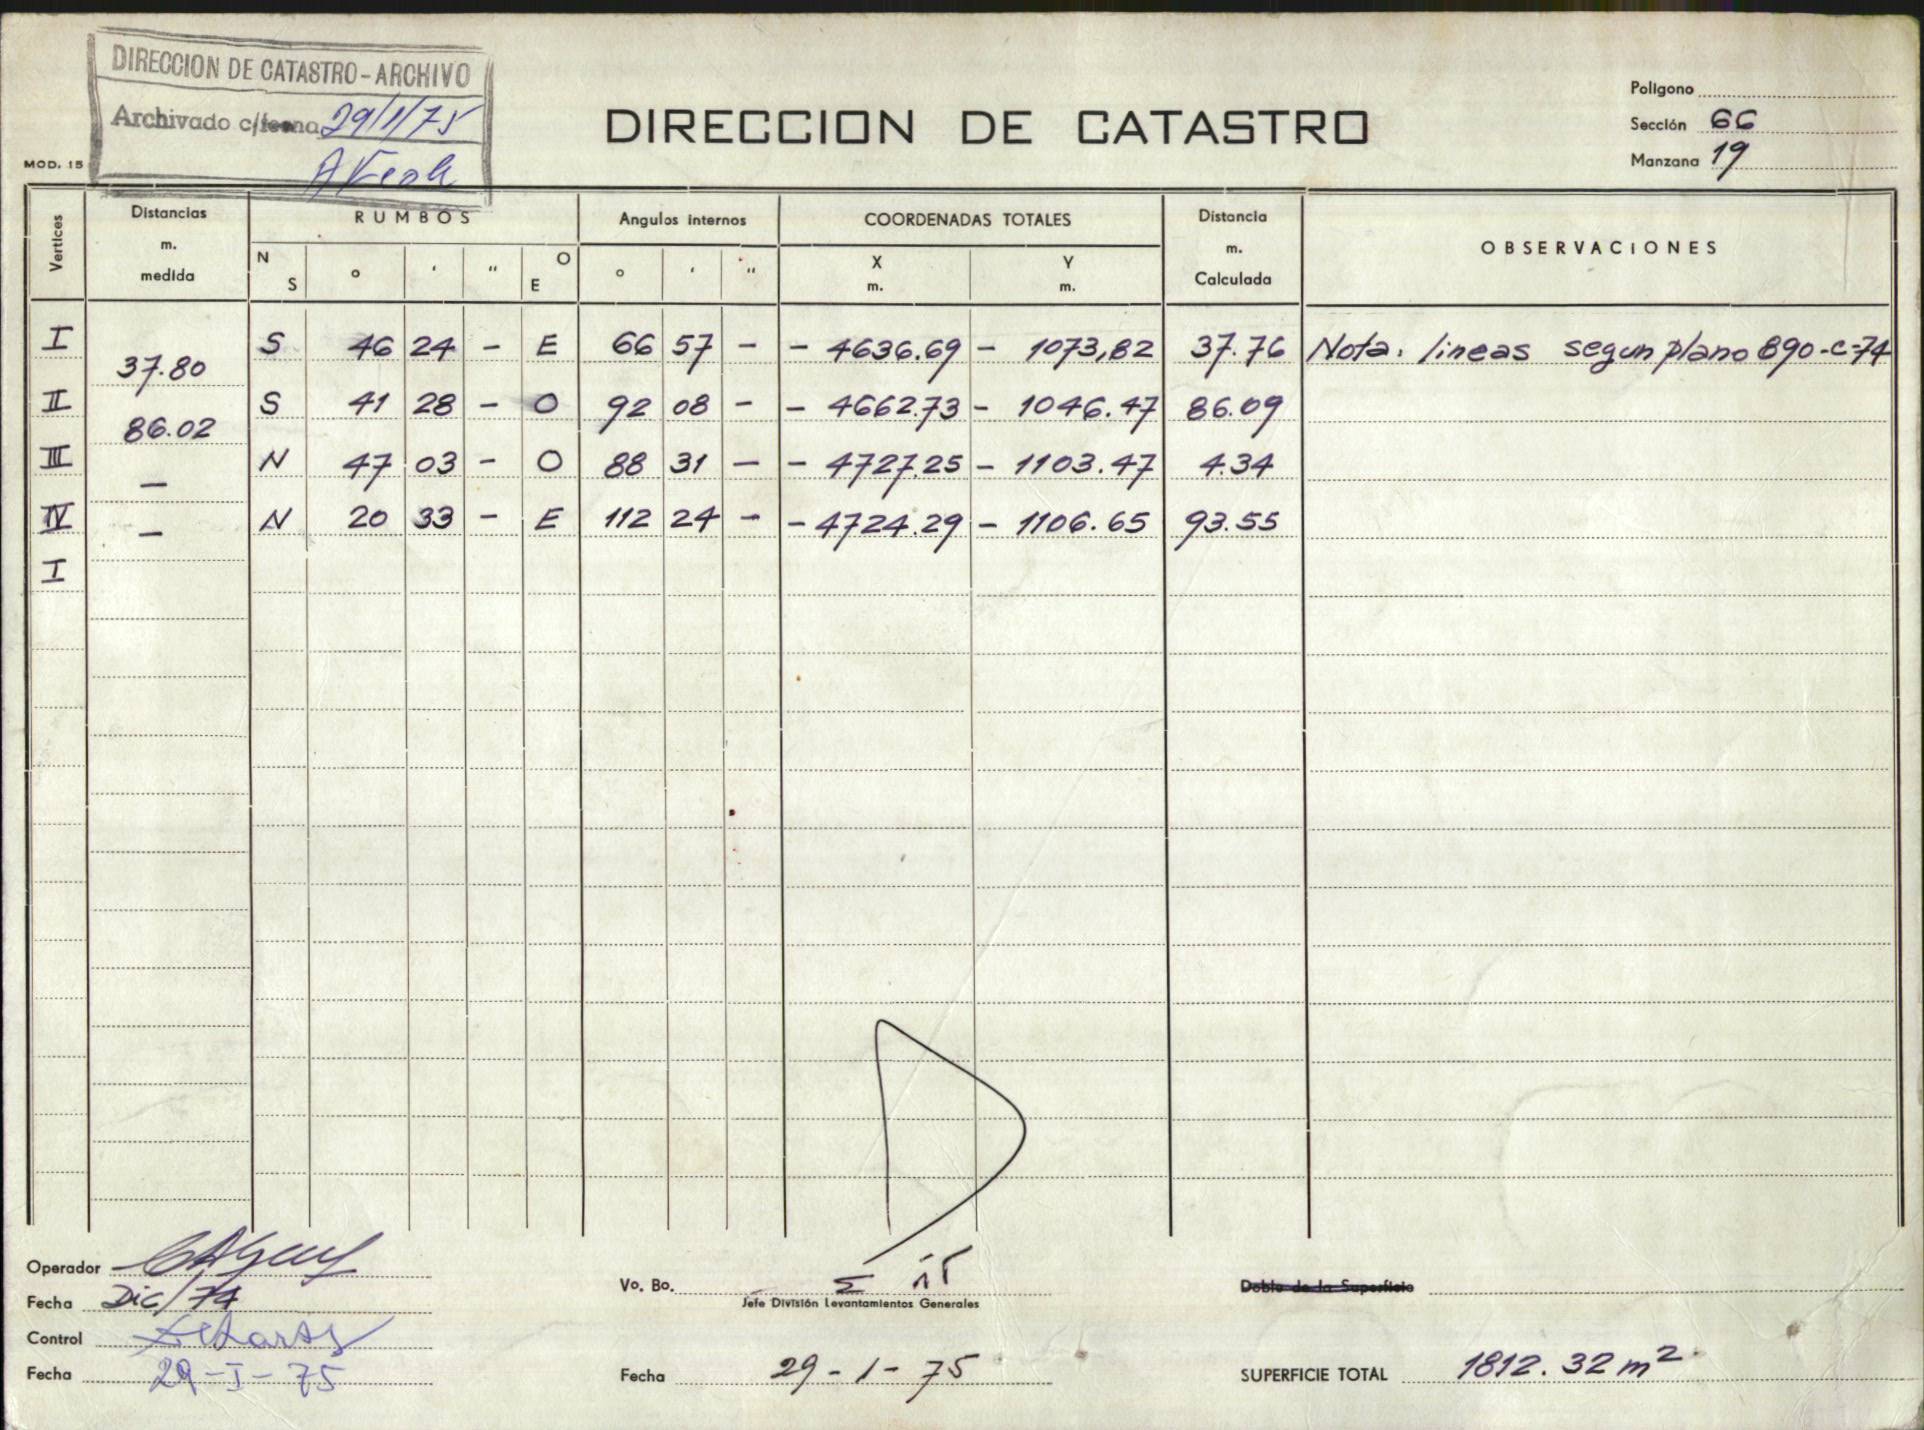 DIRECCION DE CATASTRO - ARCHIVO
Archivado c/fecha 29/1/75
MOD. 15
DIRECCION DE CATASTRO
Poligono
Sección 66
Manzana 19
Vertices
Distancias m. medida
RUMBOS
Angulos internos
COORDENADAS TOTALES
Distancia m. Calculada
OBSERVACIONES
N S ° ' " O E ° ' " X m. Y m.
I S 46 24 - E 66 57 - - 4636.69 - 1073,82 37.76 Nota. lineas segun plano 890-C-74
37.80
II S 41 28 - O 92 08 - - 4662.73 - 1046.47 86.09
86.02
III N 47 03 - O 88 31 - - 4727.25 - 1103.47 4.34
-
IV N 20 33 - E 112 24 - - 4724.29 - 1106.65 93.55
-
I
Operador
Fecha Dic/74
Control
Fecha 29-I-75
Vo. Bo.
Jefe División Levantamientos Generales
Fecha 29-1-75
Doble de la Superficie
SUPERFICIE TOTAL 1812.32 m²